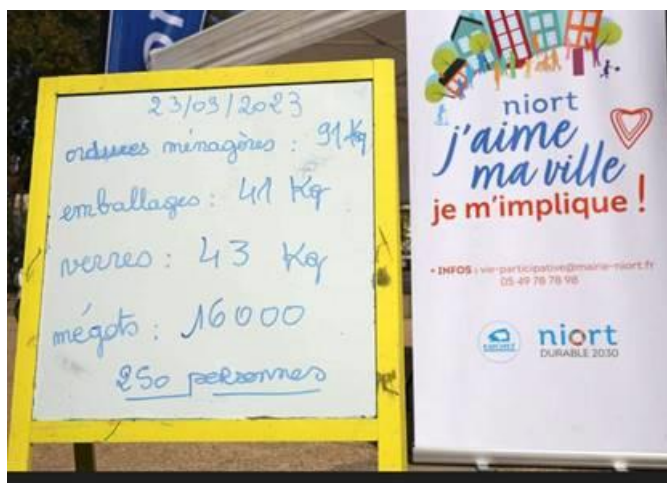 23/09/2023
ordures ménagères : 91 Kg
emballages : 41 Kg
verres : 43 Kg
mégots : 16000
250 personnes
niort
j'aime
ma ville
je m'implique !
• INFOS : vie-participative@mairie-niort.fr
05 49 78 78 98
niort
DURABLE 2030